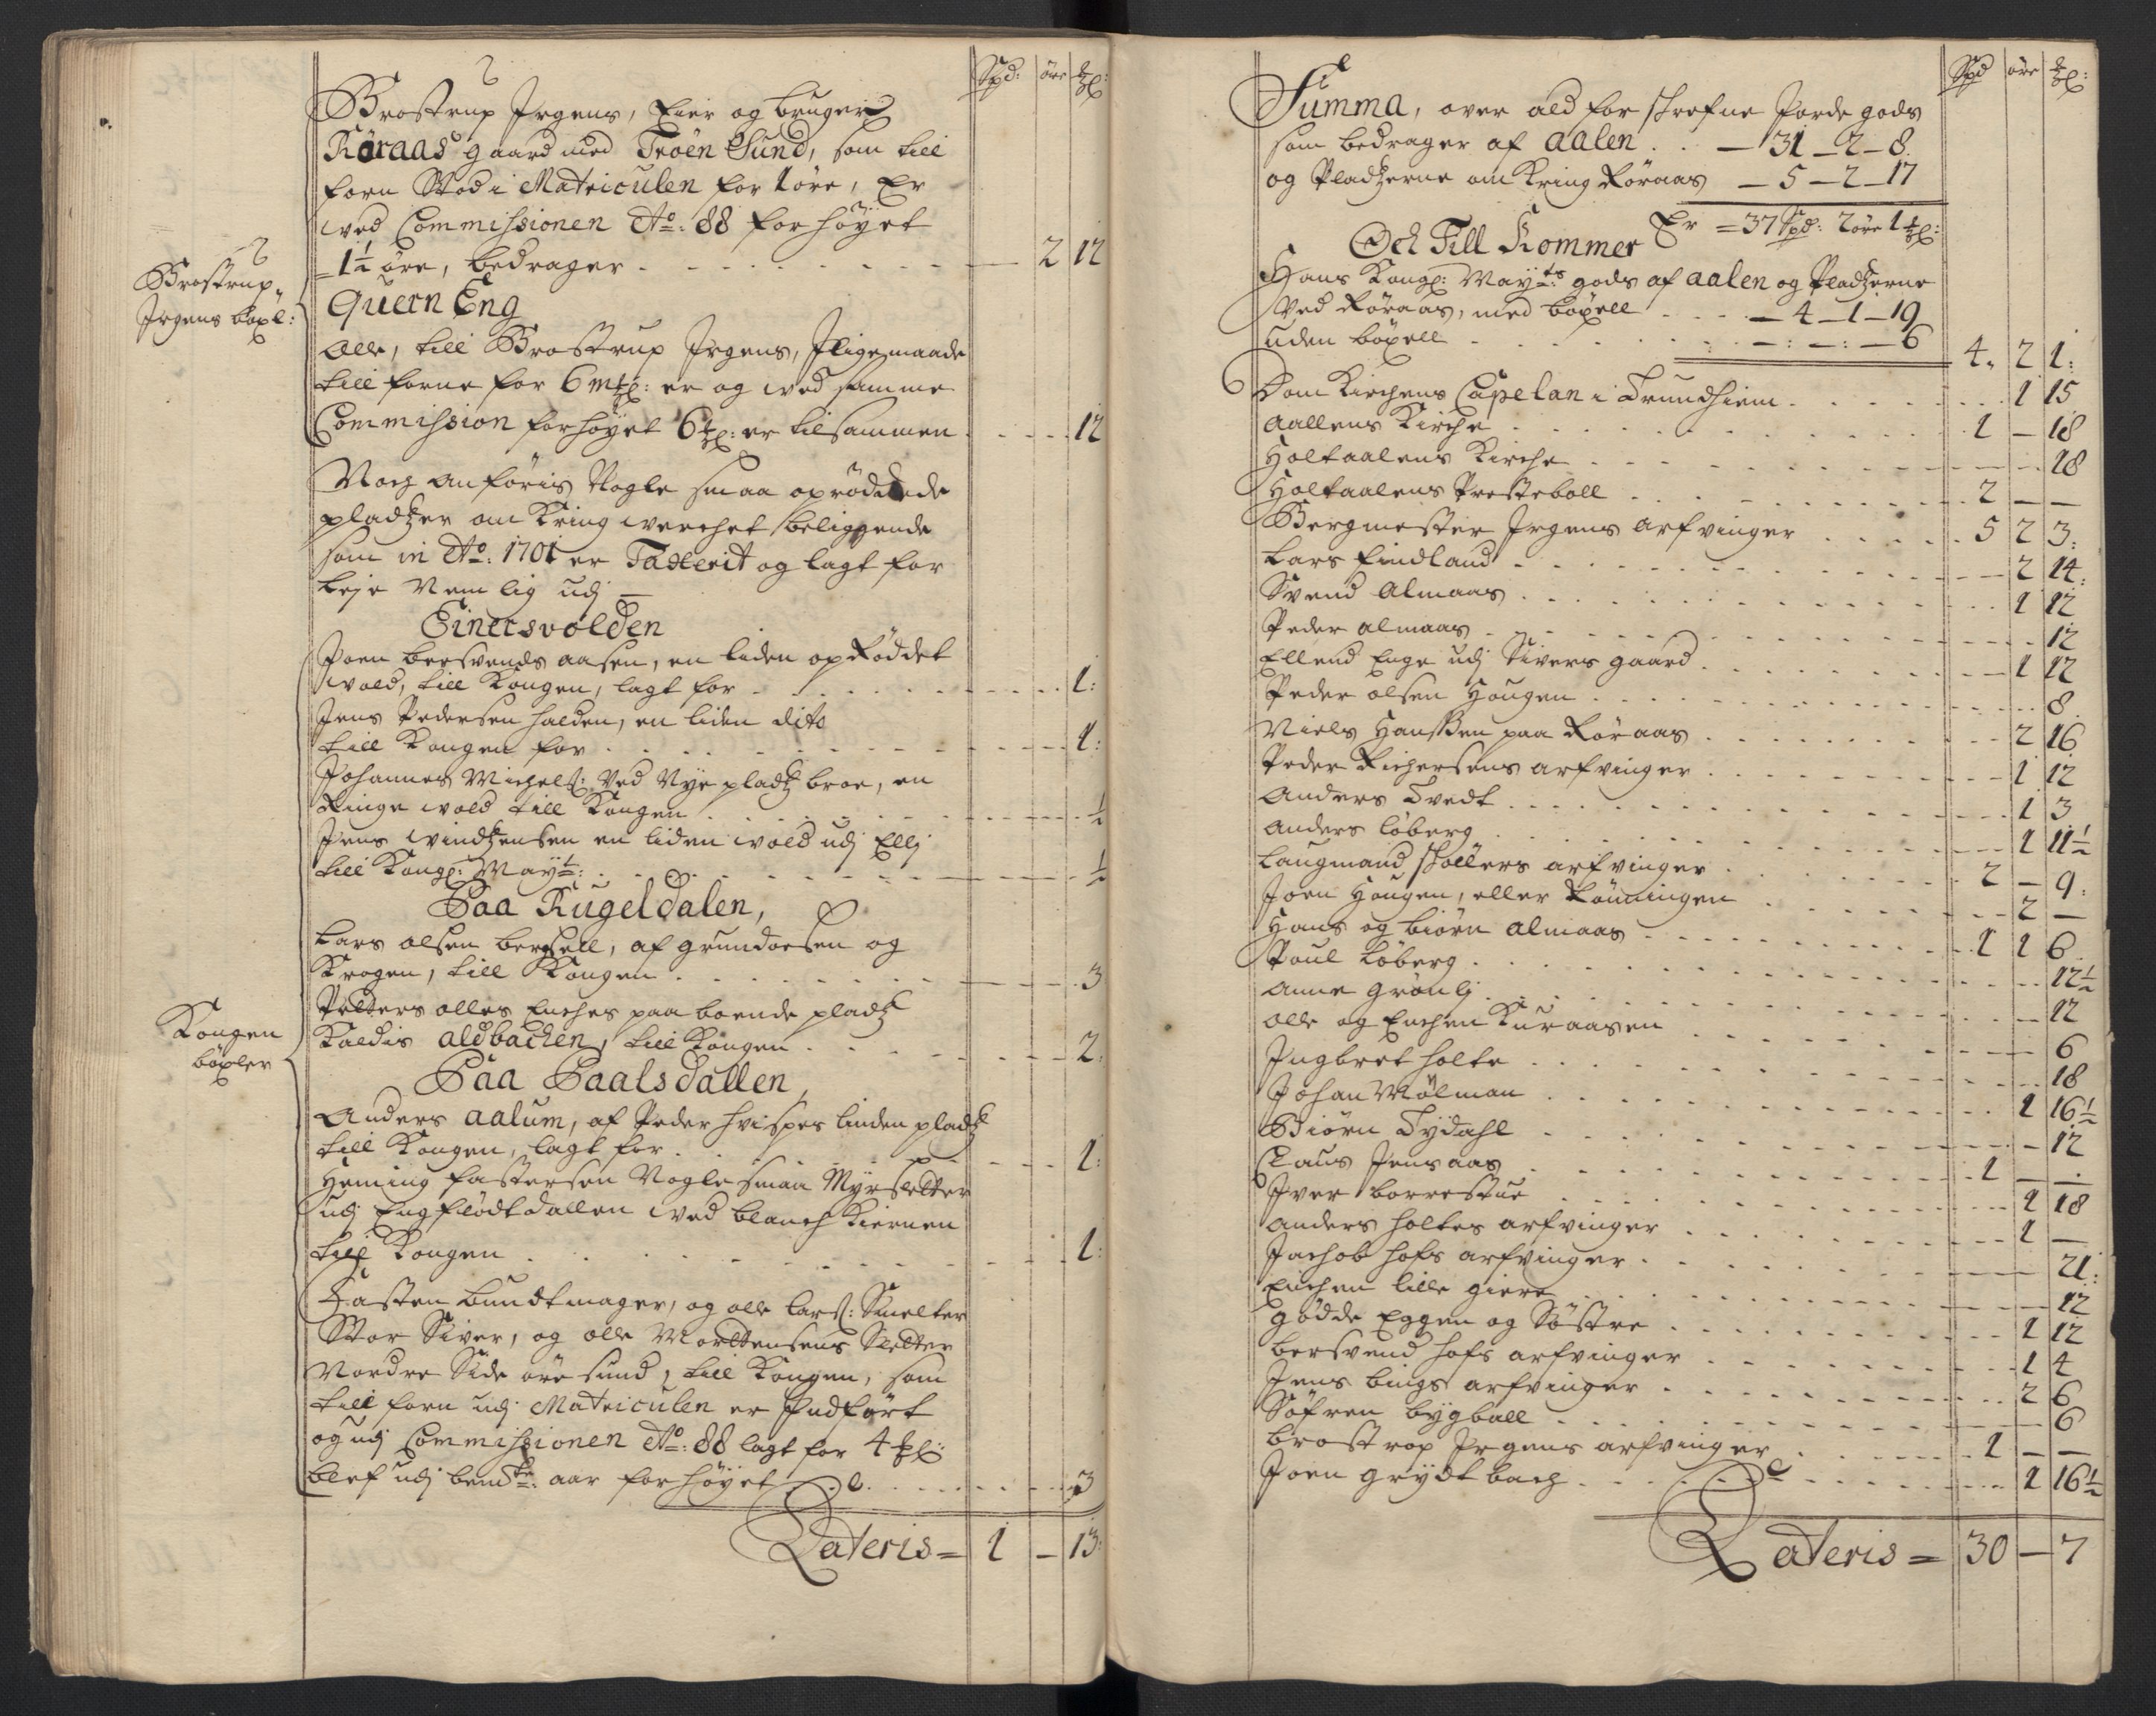 Spd: öre mkl:
Brostrup Irgens, Eier og bruger
Röraas gaard med Troen Sund, som till
forn Stod i Matriculen for 1 öre, Er
ved Commissionen Ao: 88 forhöyet
1½ öre, bedrager 2 12
Brostrup
Irgens böxl:
Quern Eng
Olle, till Brostrup Irgens, Iligemaade
till forne for 6 mkl: er og ved samme
Commission forhöyet 6 mkl: er tilsammen 12
Noch anföris Nogle smaa opröddede
pladtzer om Kring werchet beliggende
som in Ao: 1701 er Taxerit og lagt for
leje Nemlig udj
Einersvolden
Joen bersvends aasen, en liden opröddet
vold, till Kongen, lagt for 1:
Jens Pedersen halden, en liden dito
till Kongen for 1:
Johannes Michels: Ved Nye pladtz broe, en
Ringe vold till Kongen ½
Jens windtzensen en liden vold udj Elli
till Kongl: Mayt: ½
Paa Kugeldalen,
Lars olsen bersell, af grundoesen og
Krogen, till Kongen 3
Petters olles Enches paa boende pladtz
Kaldis aldbachen, till Kongen 2:
Kongen
böxler
Paa Paalsdallen,
Anders aalum, af Peder hvispes linden pladtz
till Kongen, lagt for 1:
Heming fastersen Nogle smaa Myrsletter
udj Engflödtdallen ved blanch Kiernen
till Kongen 1:
Fasten bundtmager, og olle lars: Smelter
Stor Siver, og olle Morttensens Sletter
Nordre Side öre sund, till Kongen, som
till forn udj Matriculen er Indfört
og udj Commissionen Ao: 88 lagt for 4 mkl:
blef udj bemte: aar forhöyet 3
Lateris = 1 – 13:
Spd öre mkl:
Summa, over ald for skrefne Jorde gods
som bedrager af aalen – 31 – 2 – 8
og Pladtzerne om Kring Röraas – 5 – 2 – 17
Er = 37 Spd: 2 öre 1 mkl:
Och Till Kommer
Hans Kongl: Mayts: gods af aalen og Pladtzerne
Ved Röraas, med böxell – 4 – 1 – 19
uden böxell – : – : – 6 4. 2 1:
Dom Kirchens Capelan i Trundhiem 1 15
Aallens Kirche 1 – 18
Holtaalens Kirche 18
Holtaalens Presteboll 2 – –
Bergmester Irgens arfvinger 5 2 3:
Lars Eindland 2 14:
Svend Almaas 1 12
Peder almaas 12
Ellend Enge udj Sivers gaard 1 12
Peder olsen Hougen 8
Niels Hanssen paa Röraas 2 16
Peder Richersens arfvinger 1 12
Anders Tvedt 1 3
Anders löberg 1 11½
Laugmand skollers arfvinger 2 – 9:
Joen Hougen, eller Rönningen 2 –
Hans og biörn almaas 1 1 6
Poul löberg 12½
Anne grönli 12
Olle og Enchen Kuraasen 6
Ingbret holte 18
Johan Mölman 1 16½
Biörn Tydahl 12
Claus Jens aas 1 – –
Iver borrestue 1 18
Anders holtes arfvinger 1 –
Jachob hofs arfvinger 21:
Enchen lille giere 12
Gödde Eggen og Söstre 1 12
bersvend hofs arfvinger 1 4
Jens bings arfvinger 2 6
Söfren bygball 6
brostrop Irgens arfvinger 1 – –
Joen grydtbach 1 16½
Lateris = 30 – 7